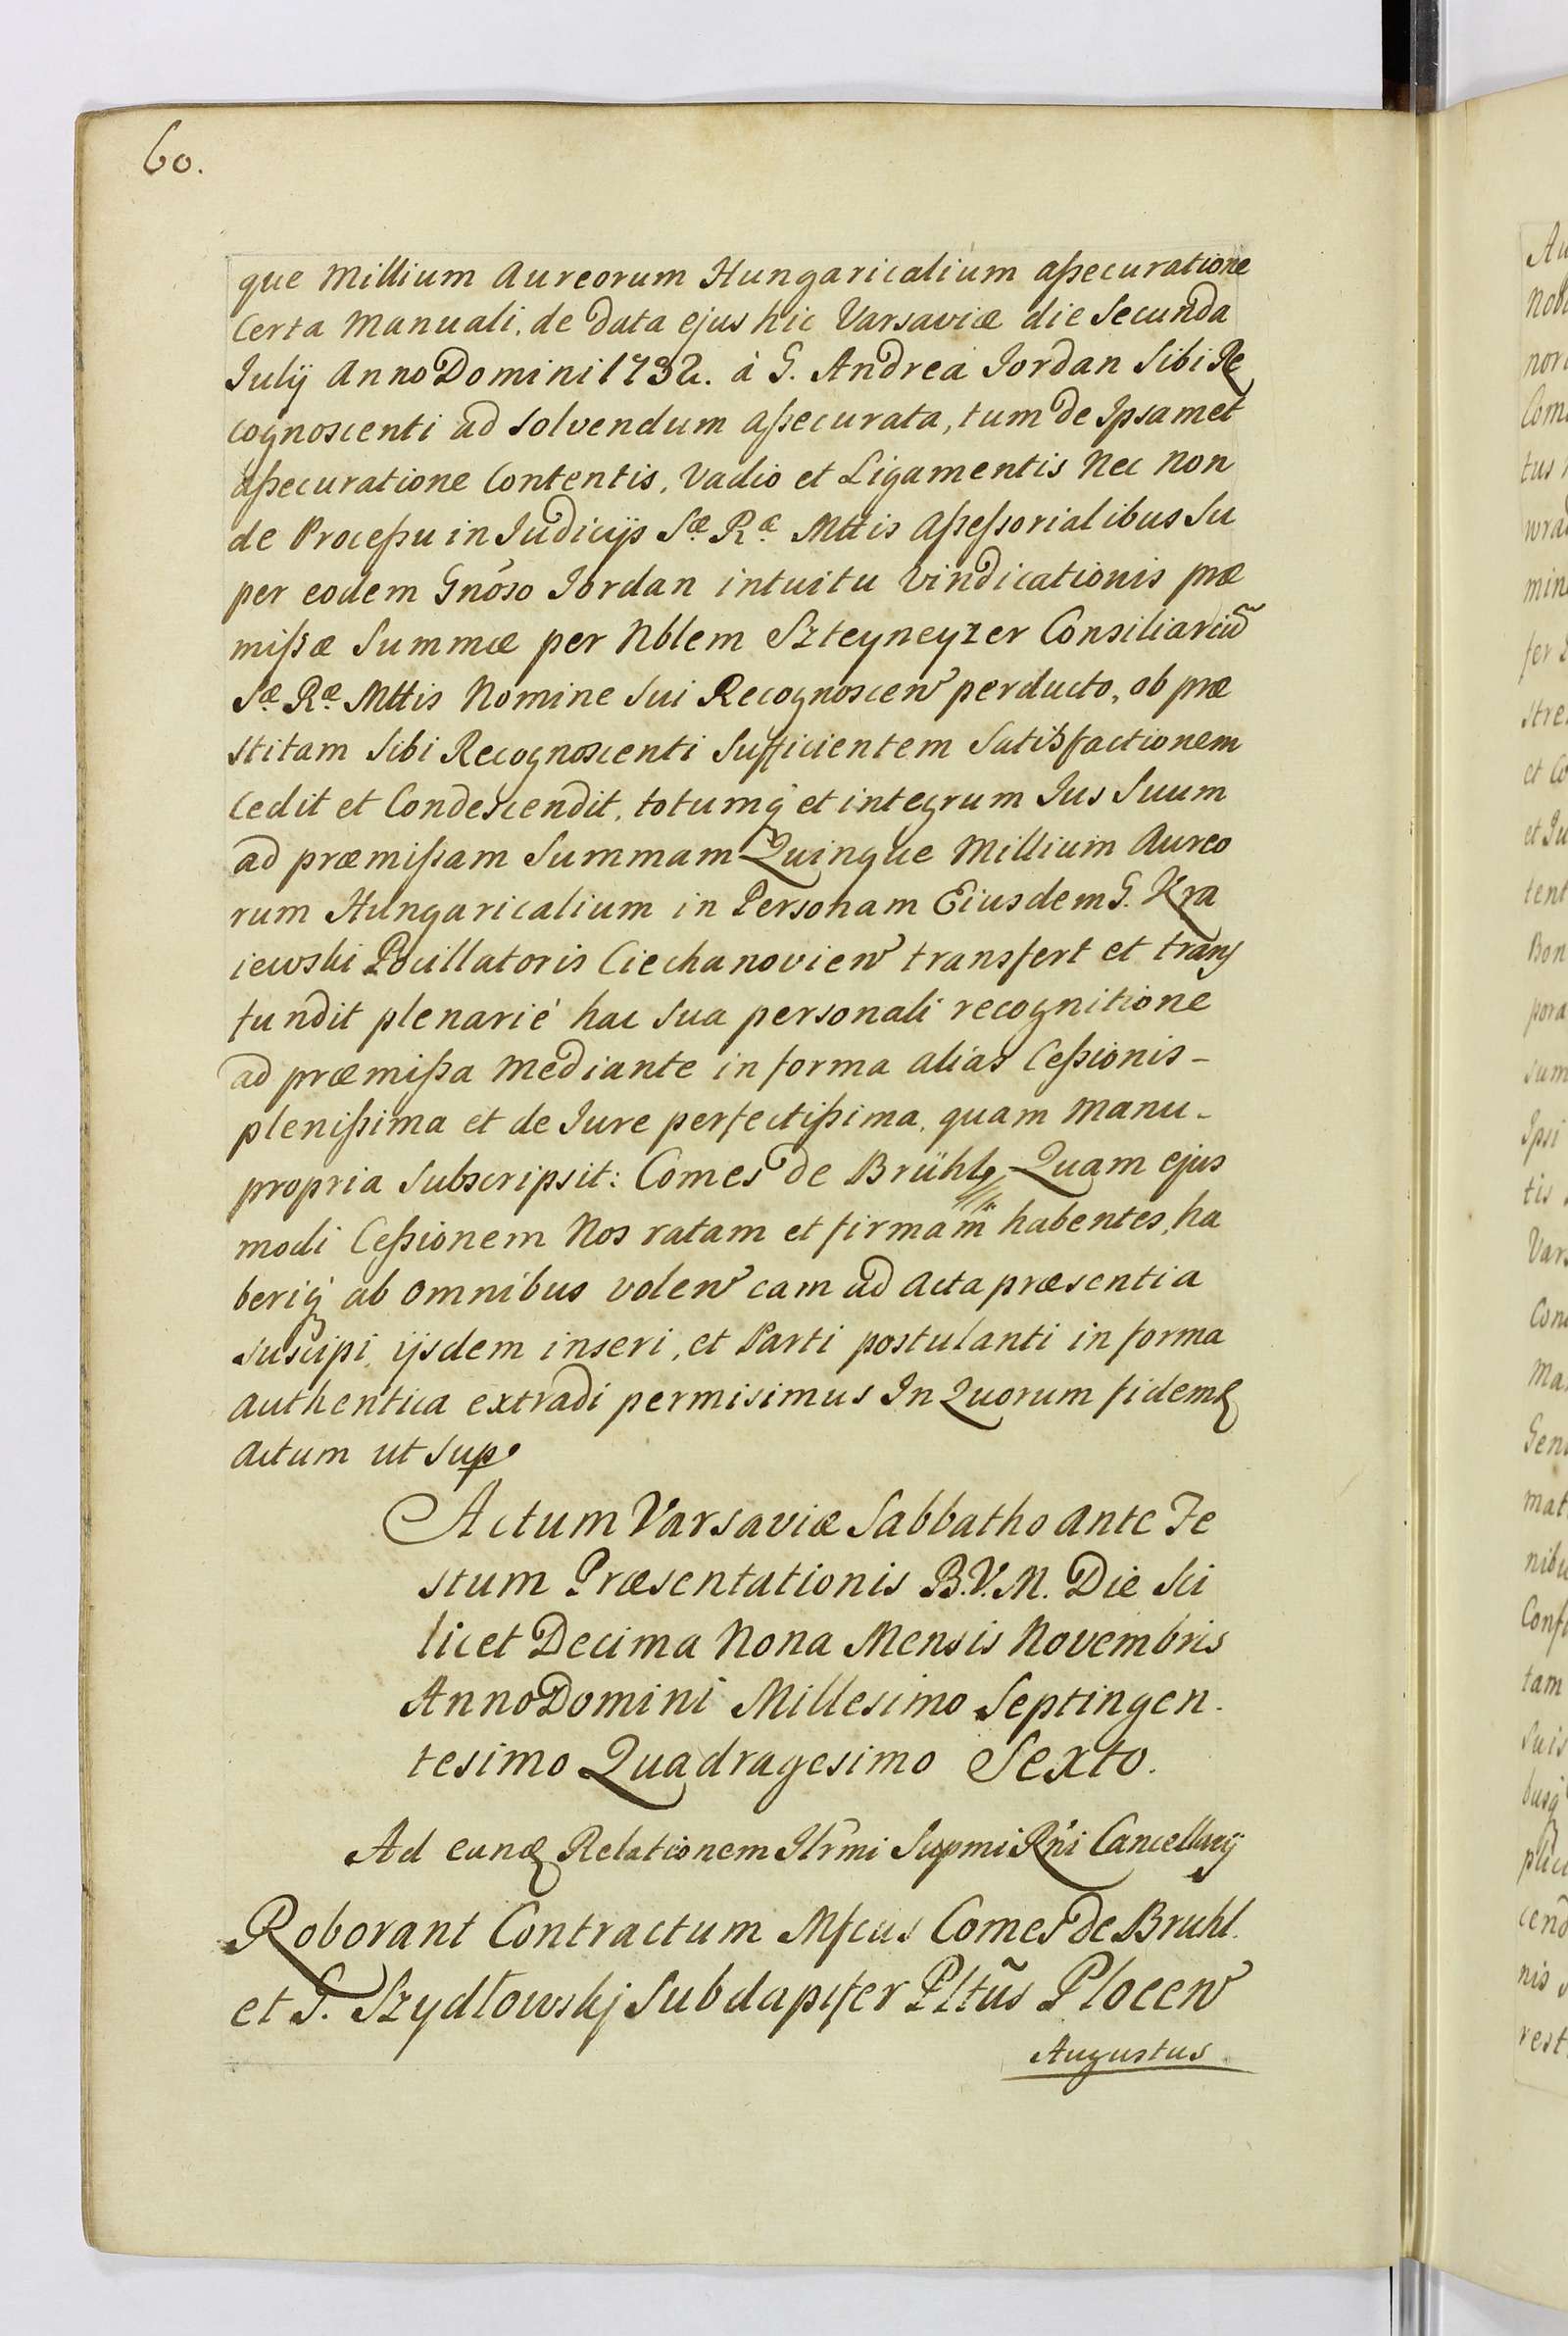 60.
que Millium Aureorum Hungaricalium aßecuratione
Certa Manuali, de Data ejus hic Varsaviæ die Secunda
Julij Anno Domini 1732. à G. Andrea Jordan Sibi Re
cognoscenti ad solvendum aßecurata, tum de Ipsamet
aßecuratione Contentis, Vadio et Ligamentis Nec Non
de Proceßu in Judicijs Sæ Ræ Mttis Aßeßorialibus Su
per eodem Gnoso Jordan intuitu Vindicationis præ
mißæ Summæ per Nblem Szteyneyzer Consiliariũ
Sæ Ræ Mttis Nomine Sui Recognoscen perducto, ob præ
stitam Sibi Recognoscenti Sufficientem Satisfactionem
Cedit et Condescendit, totumq et integrum Jus Suum
ad præmißam Summam Quinque Millium Aureo
rum Hungaricalium in Personam Eiusdem G. Kra
iewski Pocillatoris Ciechanovien transfert et trans
fundit plenariè hac Sua personali recognitione
ad præmißa Mediante in forma alias Ceßionis-
plenißima et de Jure perfectißima, quam Manu-
propria Subscripsit: Comes de Brühl, Quam ejus
modi Ceßionem Nos ratam et firmam habentes, ha
beriq ab omnibus volen eam ad Acta præsentia
suscipi, ijsdem inseri, et Parti postulanti in forma
authentica extradi permisimus In Quorum fidem
Actum ut Sup
Actum Varsaviæ Sabbatho ante Fe
stum Præsentationis B.V.M. Die Sci
licet Decima Nona Mensis Novembris
Anno Domini Millesimo Septingen-
tesimo Quadragesimo Sexto.
Ad eand Relationem Ilrmi Supmi Rñi Cancellarij
Roborant Contractum Mfcus Comes de Bruhl.
et G. Szydłowskj Subdapifer Pltũs Plocen
Augustus